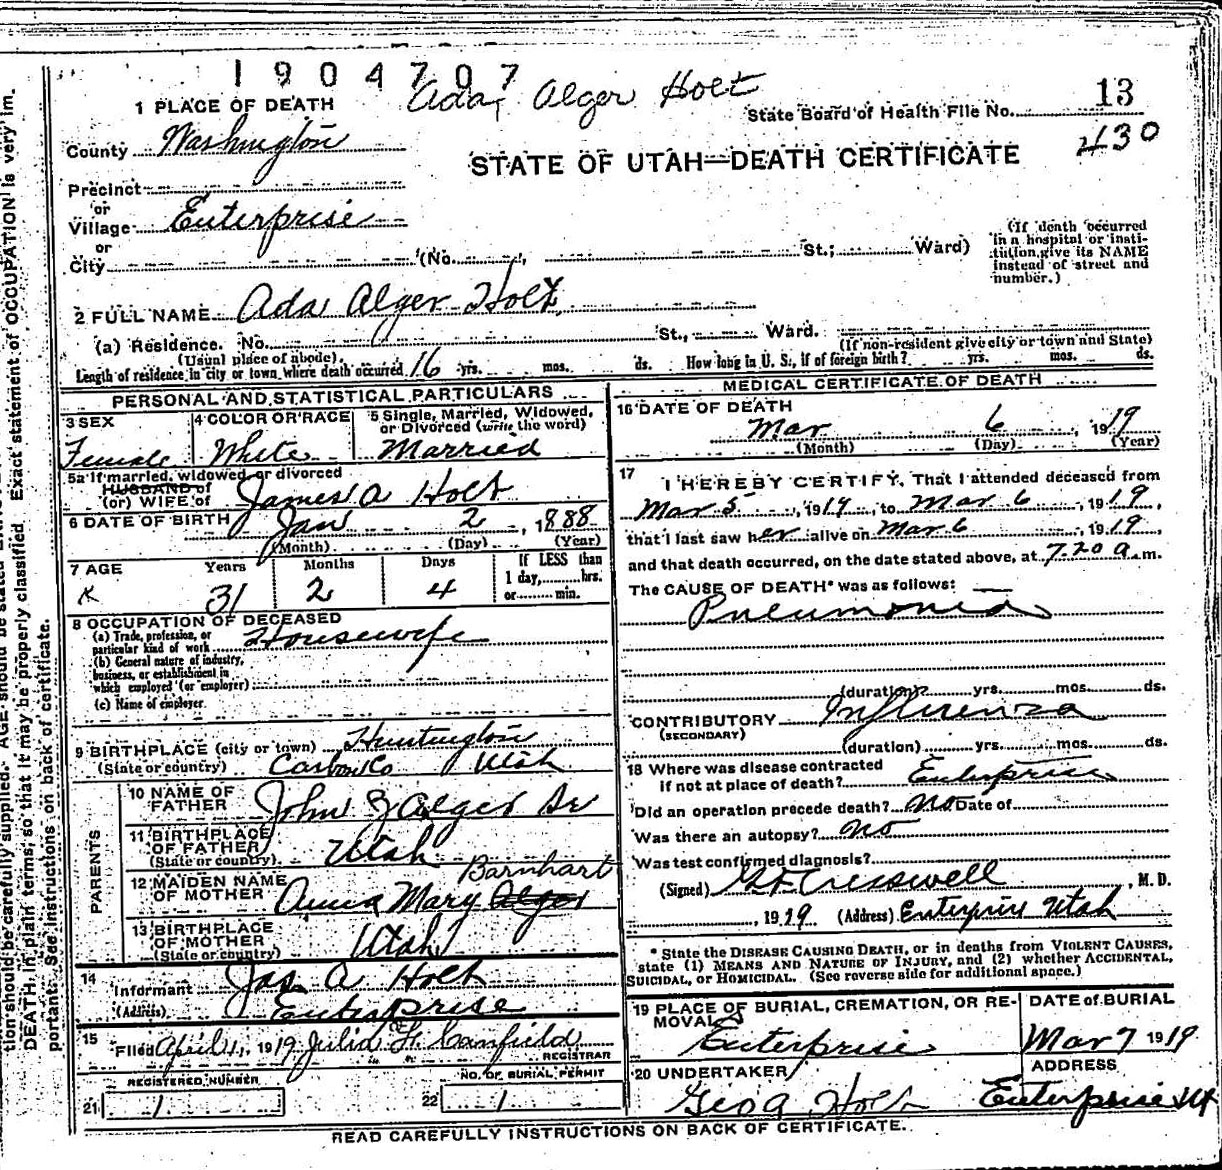 1904707
Ada Alger Holt
1 PLACE OF DEATH
State Board of Health File No. 13
430
County Washington
STATE OF UTAH—DEATH CERTIFICATE
Precinct
or
Village Enterprise
or
City (No. , St.; Ward)
(If death occurred in a hospital or insti-
tution, give its NAME
instead of street and
number.)
2 FULL NAME Ada Alger Holt
(a) Residence. No. St., Ward.
(Usual place of abode). (If non-resident give city or town and State)
Length of residence in city or town where death occurred 16 yrs. mos. ds. How long in U. S., if of foreign birth? yrs. mos. ds.
PERSONAL AND STATISTICAL PARTICULARS
3 SEX
Female
4 COLOR OR RACE
White
5 Single, Married, Widowed,
or Divorced (write the word)
Married
5a If married, widowed or divorced
HUSBAND of
(or) WIFE of James A Holt
6 DATE OF BIRTH Jan 2, 1888
(Month) (Day) (Year)
7 AGE Years Months Days If LESS than
1 day, hrs.
or min.
K 31 2 4
8 OCCUPATION OF DECEASED
(a) Trade, profession, or
particular kind of work Housewife
(b) General nature of industry,
business, or establishment in
which employed (or employer)
(c) Name of employer
9 BIRTHPLACE (city or town) Huntington
(State or country) Carbon Co Utah
PARENTS
10 NAME OF
FATHER John Z Alger Sr
11 BIRTHPLACE
OF FATHER
(State or country) Utah
12 MAIDEN NAME
OF MOTHER Anna Mary Alger Barnhart
13 BIRTHPLACE
OF MOTHER
(State or country) Utah
14
Informant Jas A Holt
(Address) Enterprise
15
Filed April 1, 1919 Julia H. Canfield
REGISTRAR
REGISTERED NUMBER
21 1
NO. OF BURIAL PERMIT
22 1
MEDICAL CERTIFICATE OF DEATH
16 DATE OF DEATH
Mar 6, 1919
(Month) (Day) (Year)
17
I HEREBY CERTIFY, That I attended deceased from
Mar 5, 1919, to Mar 6, 1919,
that I last saw her alive on Mar 6, 1919,
and that death occurred, on the date stated above, at 7.20 a.m.
The CAUSE OF DEATH* was as follows:
Pneumonia
(duration) yrs. mos. ds.
CONTRIBUTORY Influenza
(SECONDARY)
(duration) yrs. mos. ds.
18 Where was disease contracted
If not at place of death? Enterprise
Did an operation precede death? No Date of
Was there an autopsy? No
Was test confirmed diagnosis?
(Signed) Cresswell, M. D.
, 1919 (Address) Enterprise Utah
* State the DISEASE CAUSING DEATH, or in deaths from VIOLENT CAUSES,
state (1) MEANS AND NATURE OF INJURY, and (2) whether ACCIDENTAL,
SUICIDAL, or HOMICIDAL. (See reverse side for additional space.)
19 PLACE OF BURIAL, CREMATION, OR RE-
MOVAL
Enterprise
DATE of BURIAL
Mar 7 1919
20 UNDERTAKER
Geo A Holt
ADDRESS
Enterprise Ut
READ CAREFULLY INSTRUCTIONS ON BACK OF CERTIFICATE.
tion should be carefully supplied. AGE should be stated
DEATH in plain terms, so that it may be properly classified. Exact statement of OCCUPATION is very im-
portant. See instructions on back of certificate.